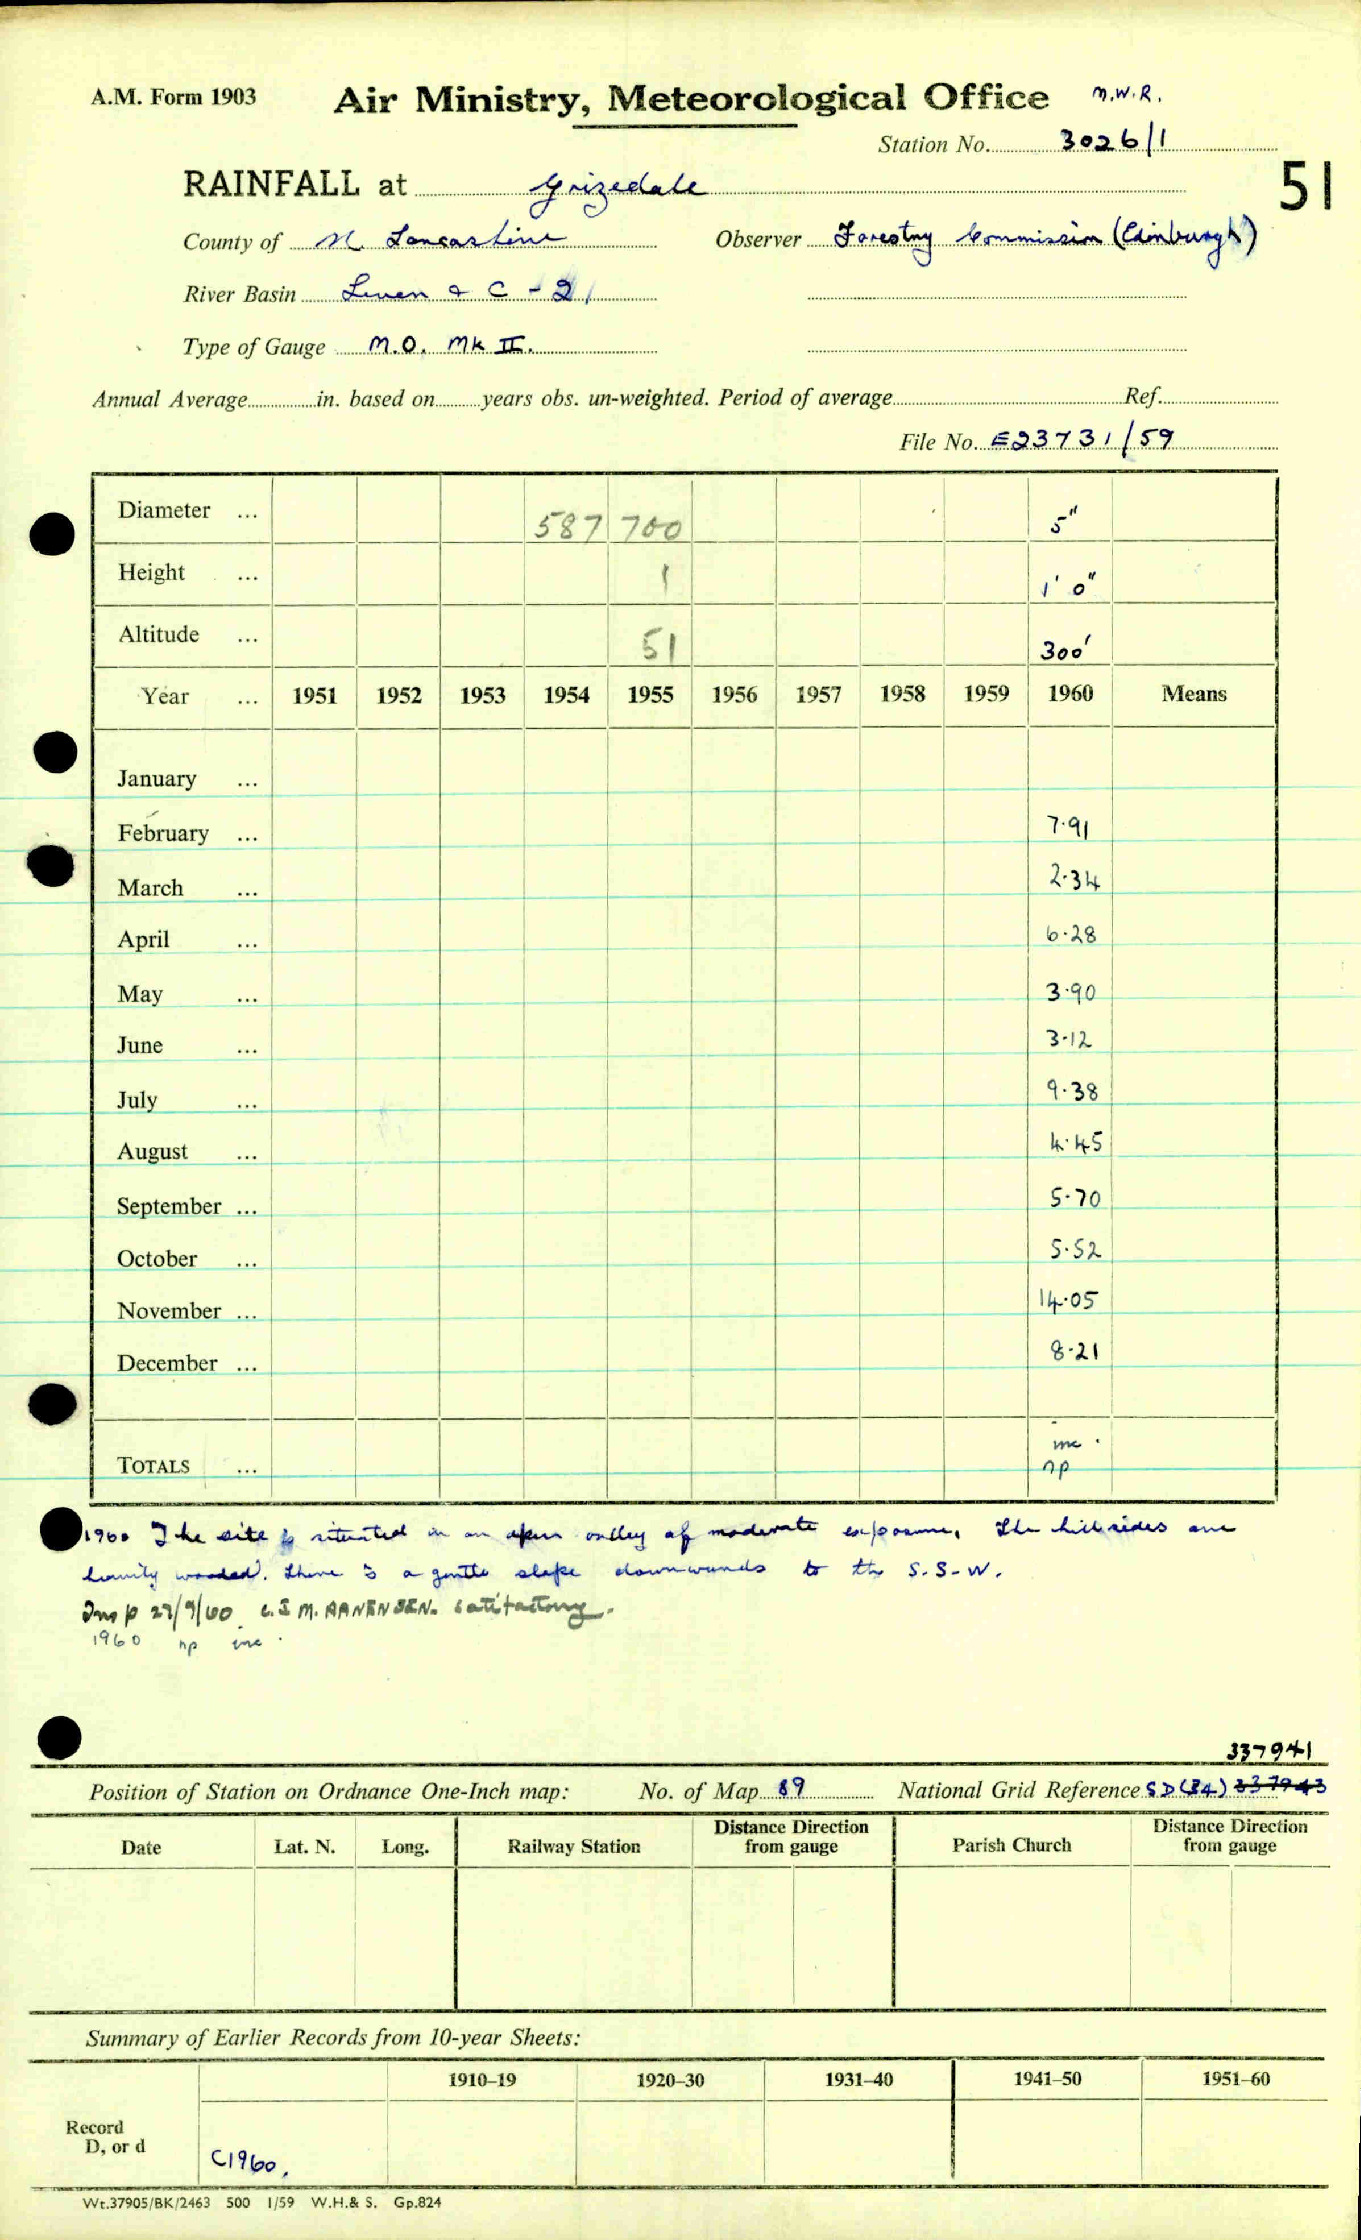 A.M. Form 1903 Air Ministry, Meteorological Office M.W.R.
Station No. 3026/1
RAINFALL at Grizedale 51
County of N Lancashire Observer Forestry Commission (Edinburgh)
River Basin Leven & C - 2
Type of Gauge M.O. Mk II.
Annual Average in. based on years obs. un-weighted. Period of average Ref.
File No. E23731/59
Diameter ... 587 700 5"
Height ... 1 1' 0"
Altitude ... 51 300'
Year ... 1951 1952 1953 1954 1955 1956 1957 1958 1959 1960 Means
January ...
February ... 7.91
March ... 2.34
April ... 6.28
May ... 3.90
June ... 3.12
July ... 9.38
August ... 4.45
September ... 5.70
October ... 5.52
November ... 14.05
December ... 8.21
inc.
TOTALS ... np
1960 The site is situated in an open valley of moderate exposure, the hillsides are
heavily wooded. there is a gentle slope downwards to the S.S.W.
Insp 27/9/60 M. AANENSEN. satisfactory.
1960 np inc.
337941
Position of Station on Ordnance One-Inch map: No. of Map 89 National Grid Reference SD (34) 337943
Date Lat. N. Long. Railway Station Distance Direction from gauge Parish Church Distance Direction from gauge
Summary of Earlier Records from 10-year Sheets:
1910–19 1920–30 1931–40 1941–50 1951–60
Record
D, or d C1960.
Wt.37905/BK/2463 500 1/59 W.H.& S. Gp.824